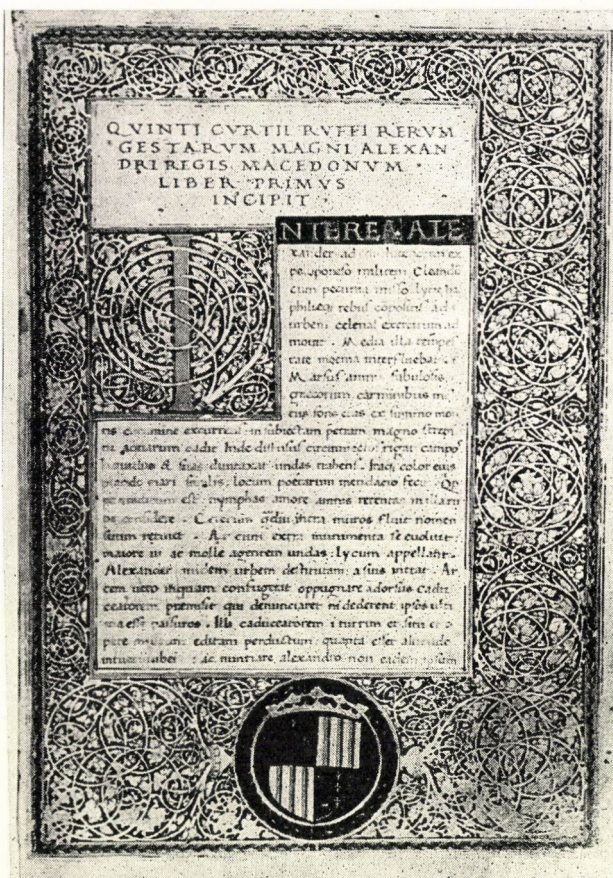 QVINTI CVRTII RVFFI RERVM
GESTARVM MAGNI ALEXAN
DRI REGIS MACEDONVM
LIBER PRIMVS
INCIPIT
INTEREA ALE
xander ad ex
peloponeso militem Cleandro
cum pecunia misso lycie
philieq rebus copositis ad
urbem celenas exercitum ad
mouit . Media illa tempes
tate moenia interfluebat
Marsias amnis fabulosis
grecorum carminibus in
eius fons ex summo mon
tis cacumine excurrens in subiectam petram magno strepi
tu aquarum cadit Inde diffusus circumiectos rigat campos
liquidus & suas dumtaxat undas trahens . Itaq color eius
placido mari similis locum poetarum mendacio fecit .
est nymphas amore amnis retentas in illa ru
pe considere . Ceterum qdiu intra muros fluit nomen
suum retinet . At cum extra munimenta se euoluit
maiore ui ac mole agentem undas : lycum appellant .
Alexander quidem urbem destitutam a suis intrat . Ar
cem uero in quam confugerat oppugnare adorsus cadu
ceatorem premisit qui denunciaret ni dederent ipsos ulti
ma esse passuros . Illi caduceatorem i turrim et situ et o
pere multum editam perductum : quanta esset altitudo
intueri iubet : ac nuntiare alexandro non eadem ipsum